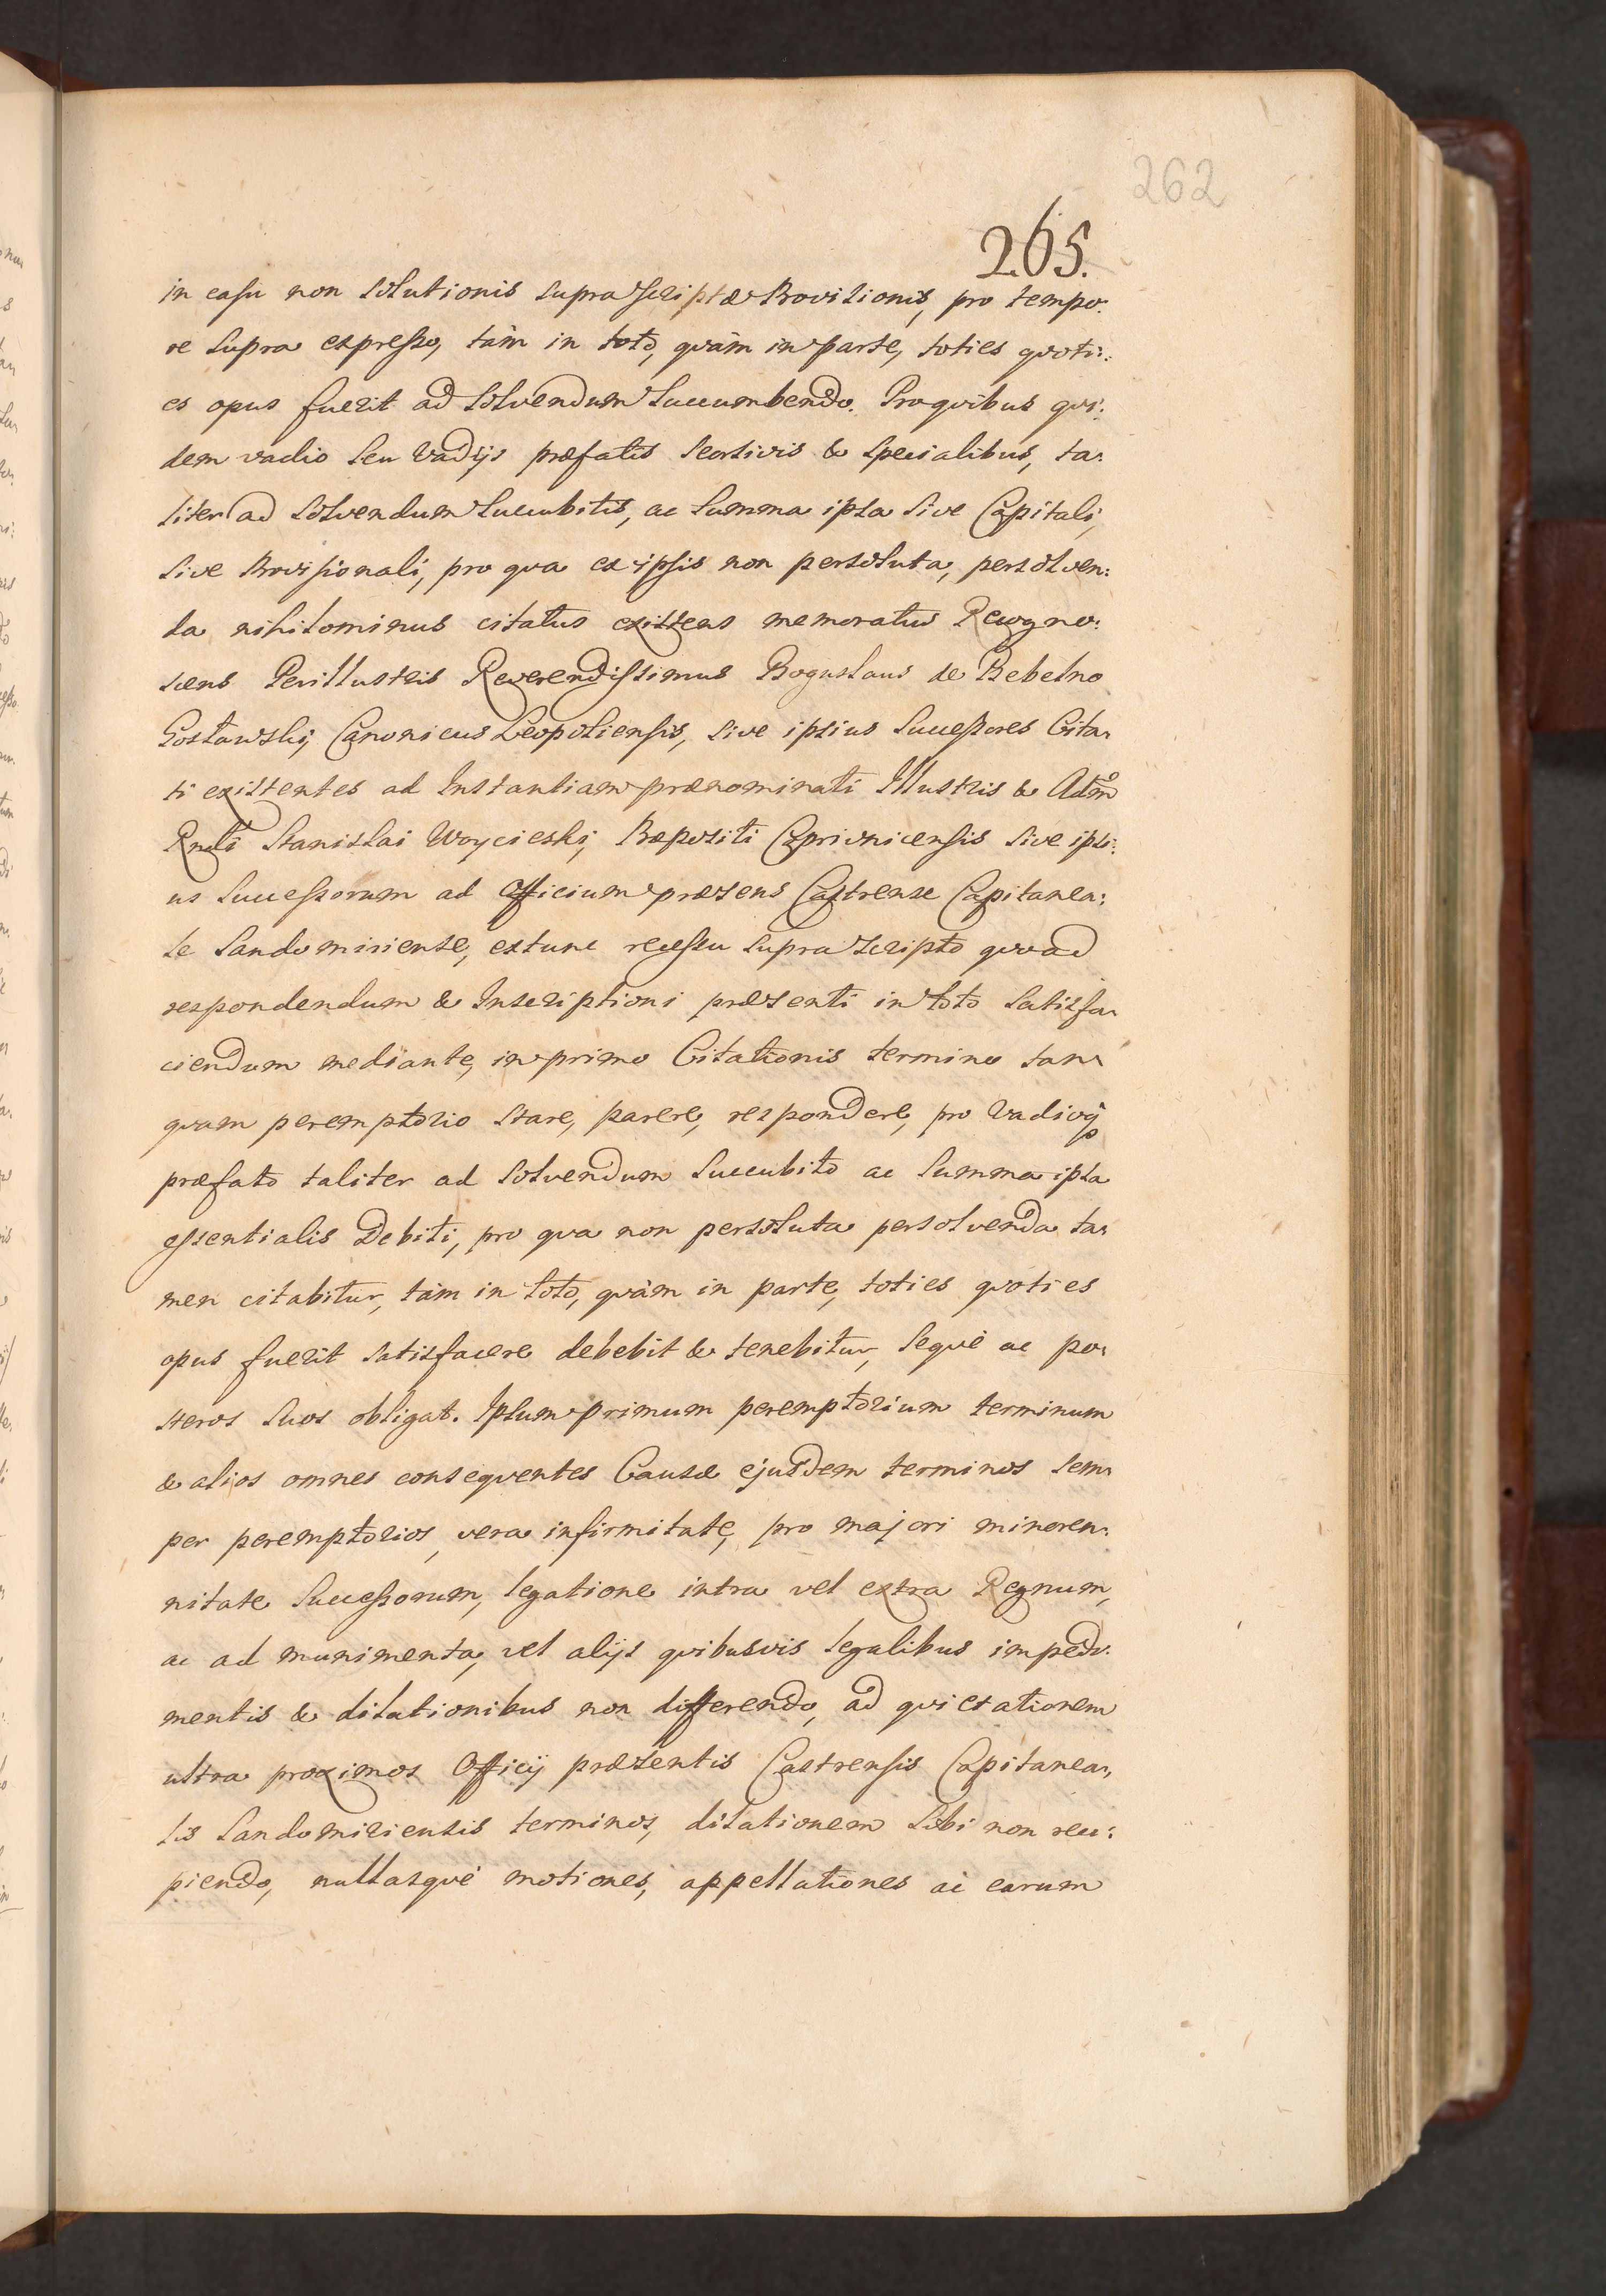 262
265.
in casu non solutionis supra scriptæ Provisionis, pro tempo:
re supra expresso, tàm in toto, quàm in parte, toties quoti:
es opus fuerit ad solvendum succumbendo. Pro quibus qui:
dem vadio seu Vadijs præfatis seorsivis & specialibus, ta:
liter ad solvendum succubitis, ac summa ipsa sive Capitali,
sive Provisionali, pro qua ex ipsis non persoluta, persolven:
da nihilominus citatus existens memoratus Recogno:
scens Perillustris Reverendissimus Boguslaus de Bebelno
Gosławski, Canonicus Leopoliensis, sive ipsius Successores Cita:
ti existentes ad Instantiam prænominati Illustris & Adm̊
Rndi Stanislai Woycieski, Præpositi Coprivnicensis sive ipsi:
us Successorum ad Officium præsens Castrense Capitanea:
le Sandomiriense, extunc recessu supra scripto quoad
respondendum & Inscriptioni præsenti in toto satisfa:
ciendum mediante, in primo Citationis termino tan:
quam peremptorio stare, parere, respondere, pro Vadioq̃
præfato taliter ad solvendum succubito ac summa ipsa
essentialis Debiti, pro qua non persoluta persolvenda ta:
men citabitur, tàm in toto, quàm in parte, toties quoties
opus fuerit satisfacere debebit & tenebitur, seque ac po:
steros suos obligat. Ipsum primum peremptorium terminum
& alios omnes consequentes Causæ ejusdem terminos sem:
per peremptorios, vera infirmitate, pro majori minoren:
nitate Successorum, legatione intra vel extra Regnum,
ac ad munimenta, vel alijs quibusvis legalibus impedi:
mentis & dilationibus non differendo, ad quietationem
ultra proximos Officij præsentis Castrensis Capitanea:
lis Sandomiriensis terminos, dilationem sibi non reci:
piendo, nullasque motiones, appellationes ac earum